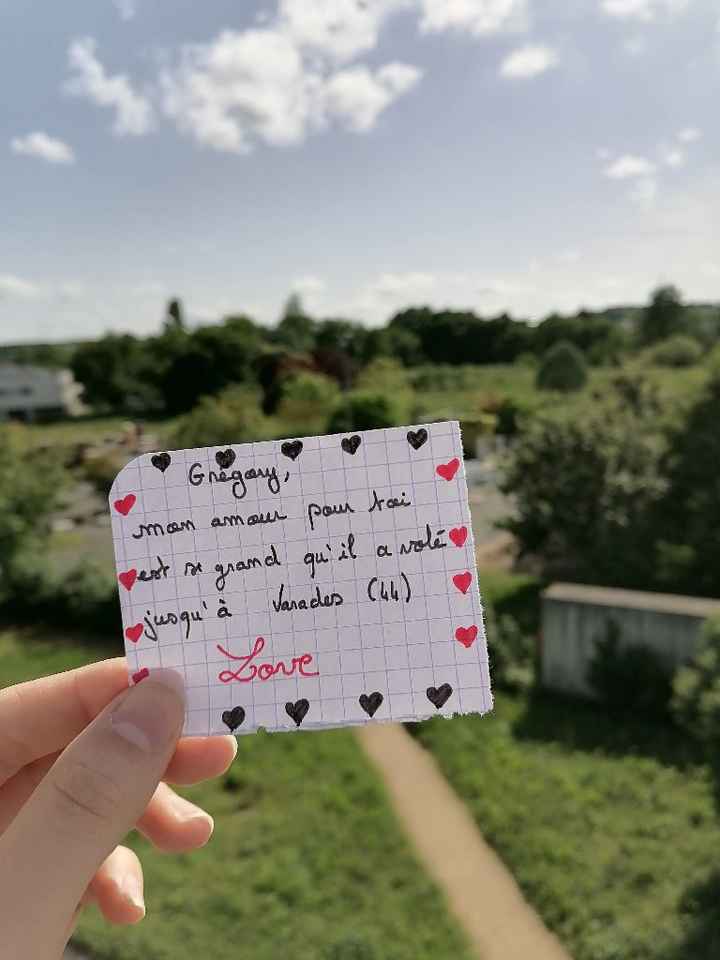 Grégory,
mon amour pour toi
est si grand qu'il a volé
jusqu'à Varades (44)
Love